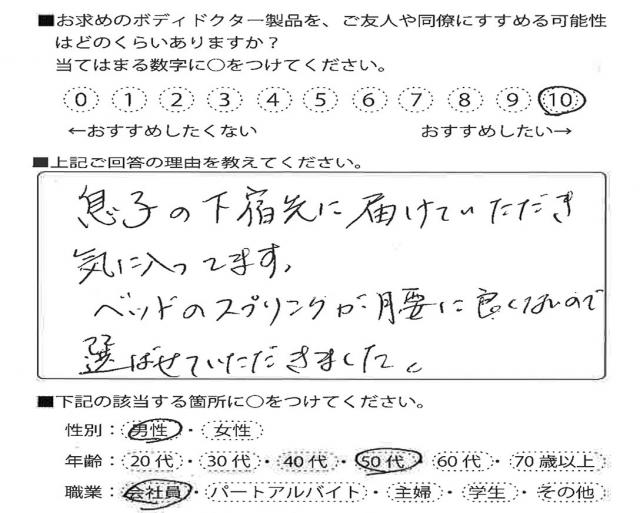 ■お求めのボディドクター製品を、ご友人や同僚にすすめる可能性
はどのくらいありますか?
当てはまる数字に○をつけてください。
0 1 2 3 4 5 6 7 8 9 10
←おすすめしたくない おすすめしたい→
■上記ご回答の理由を教えてください。
息子の下宿先に届けていただき
気に入ってます。
ベッドのスプリングが腰に良くないので
選ばせていただきました。
■下記の該当する箇所に○をつけてください。
性別:男性・女性
年齢:20代・30代・40代・50代・60代・70歳以上
職業:会社員・パートアルバイト・主婦・学生・その他